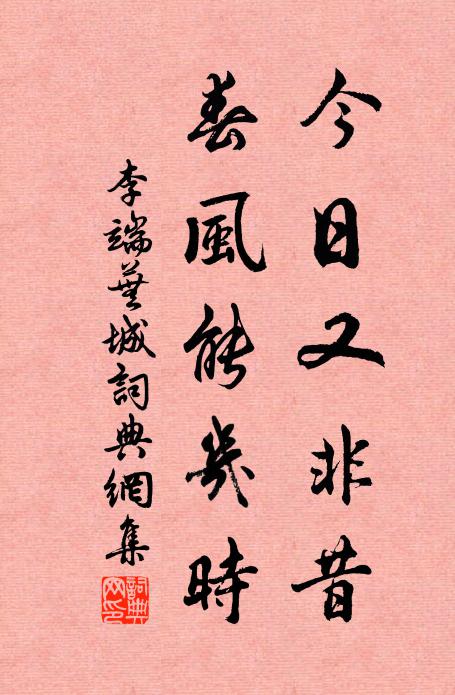 今日又非昔
春風能幾時
李端蕪城詞典網集
詞典网印